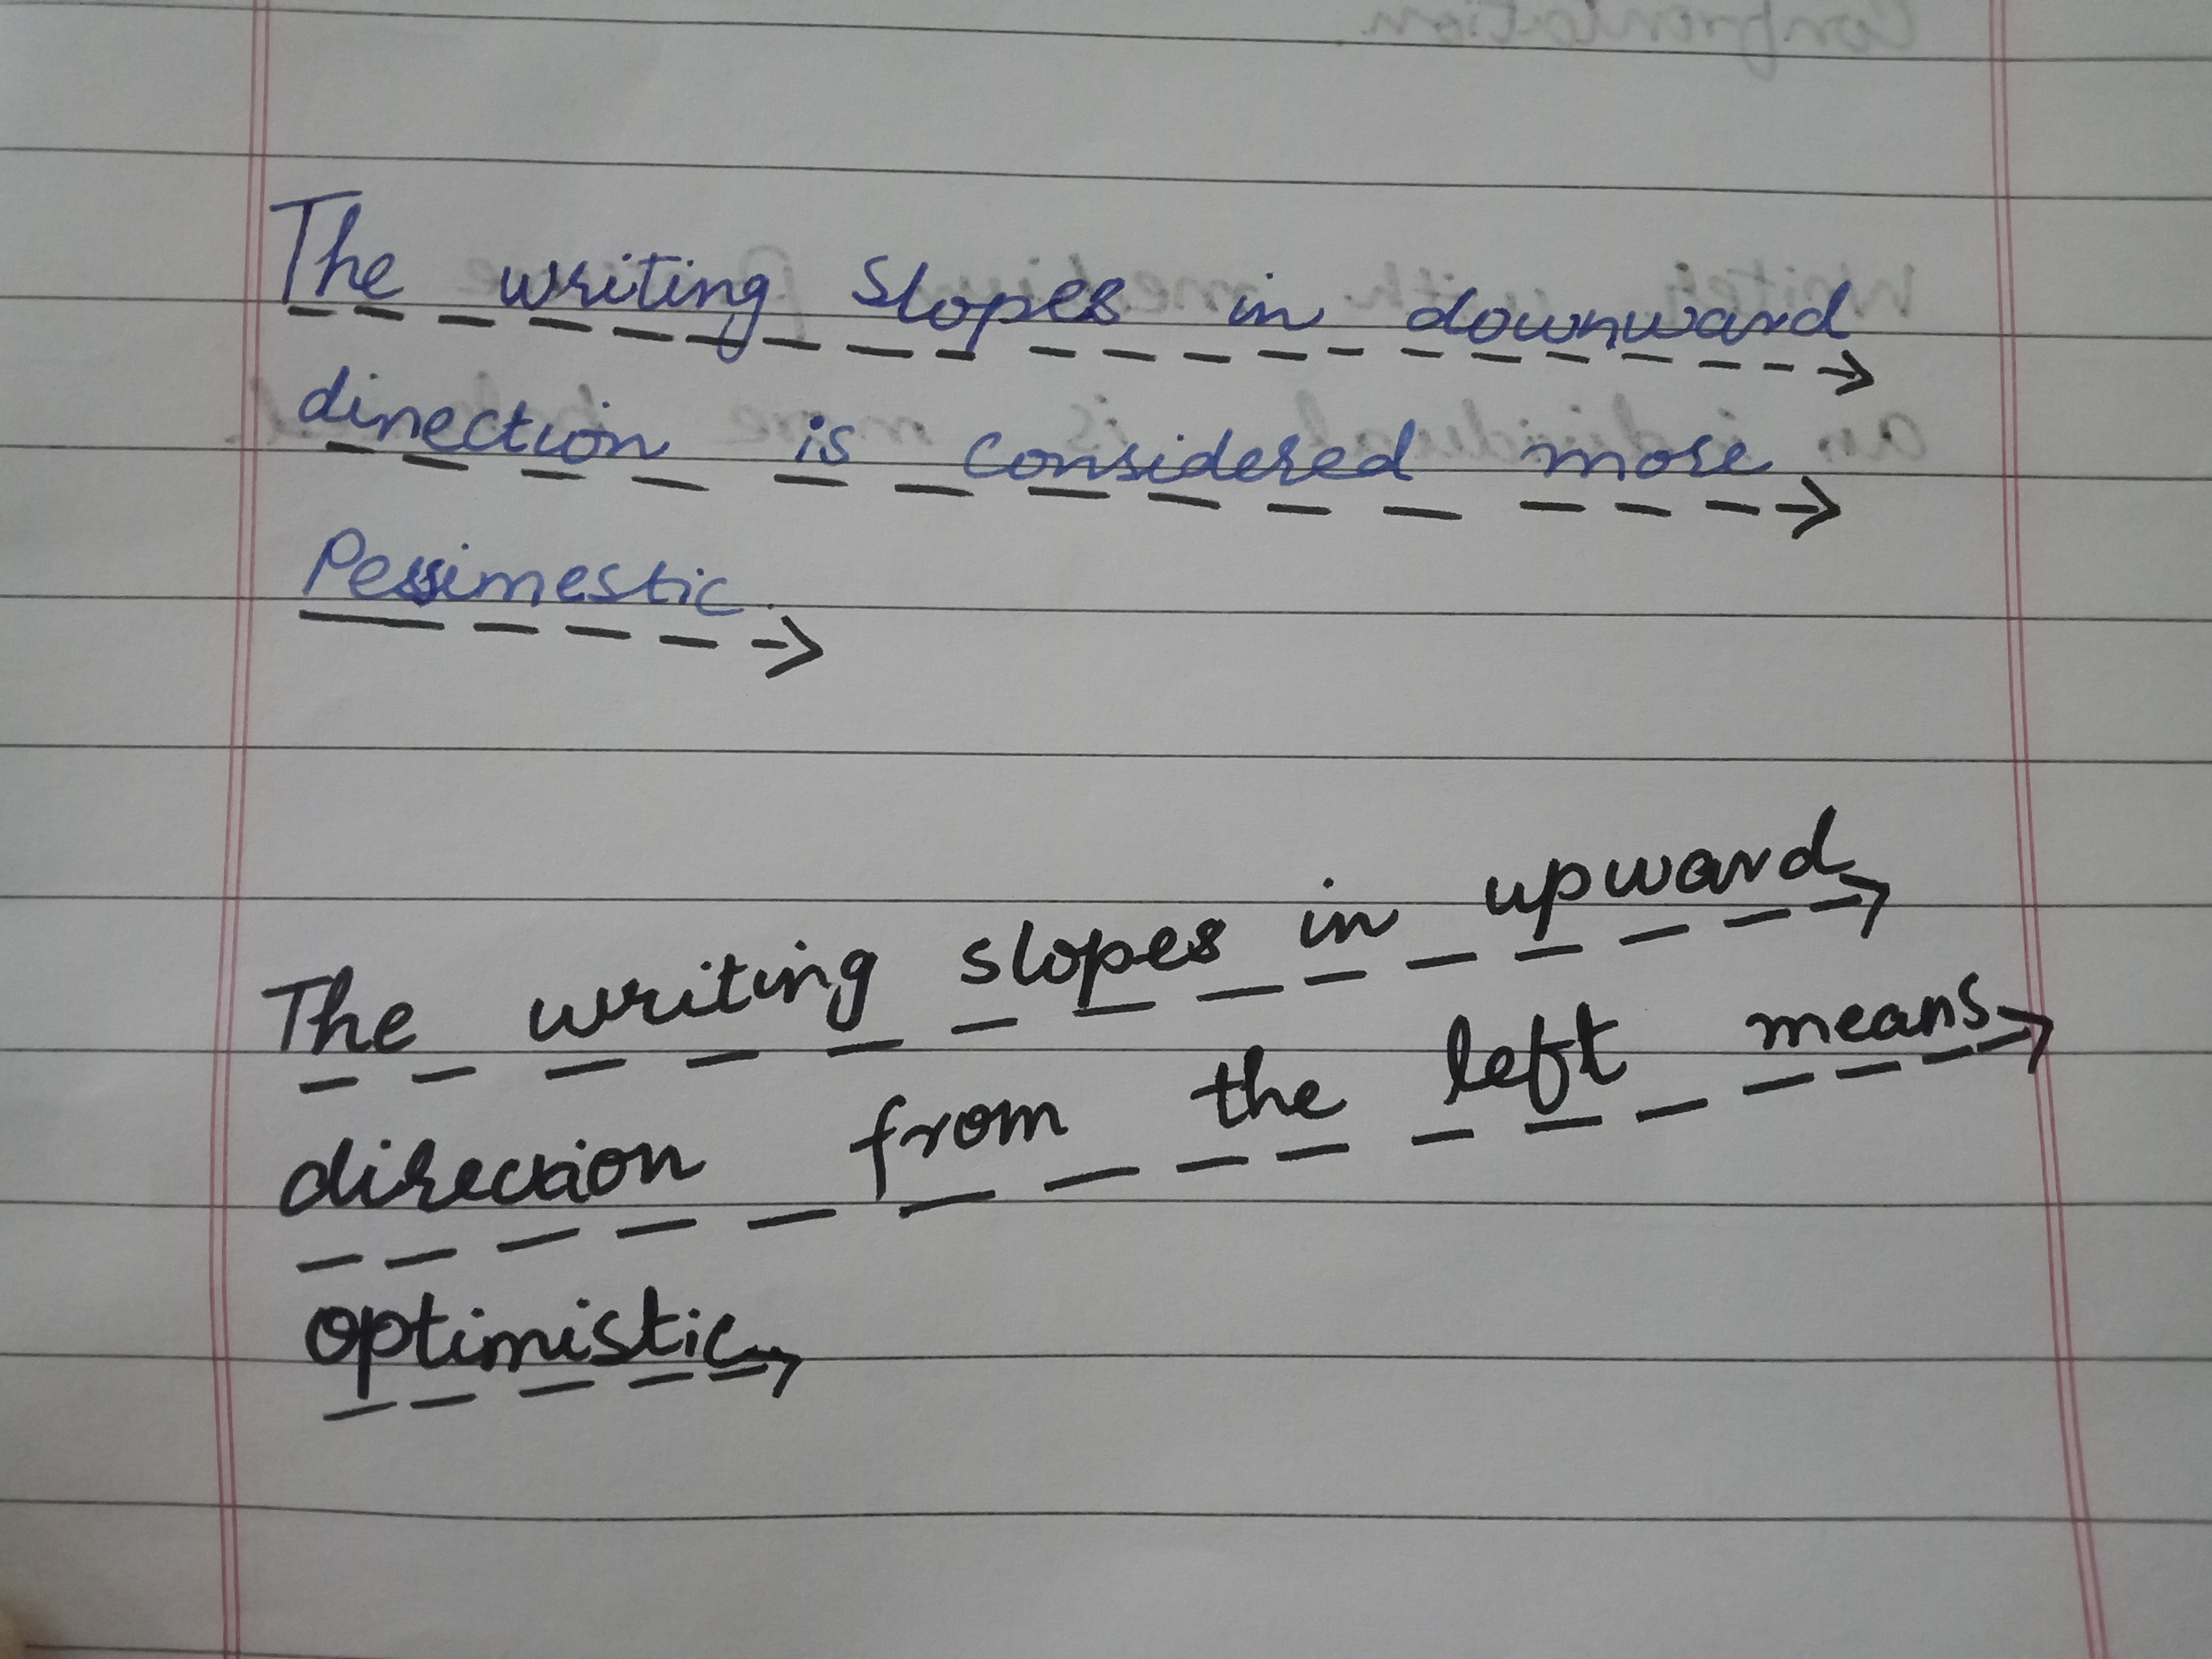 The writing slopes in downward
direction is considered more
Pessimestic.
The writing slopes in upward
direction from the left means
optimistic.